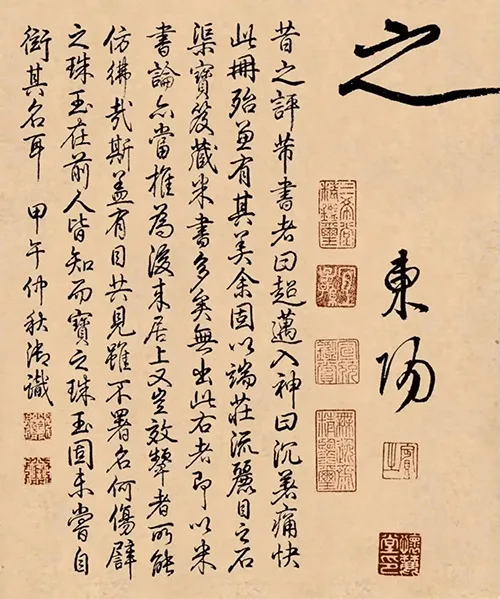 之
東陽
三希堂精鑑璽
宜子孫
宣統鑑賞
無逸齋精鑑璽
昔之評芾書者曰超邁入神曰沉著痛快
此冊殆兼有其美余固以端莊流麗目之石
渠寶笈藏米書多矣無出此右者即以米
書論亦當推為後來居上又豈效顰者所能
仿彿哉斯蓋有目共見雖不署名何傷譬
之珠玉在前人皆知而寶之珠玉固未嘗自
衒其名耳 甲午仲秋御識